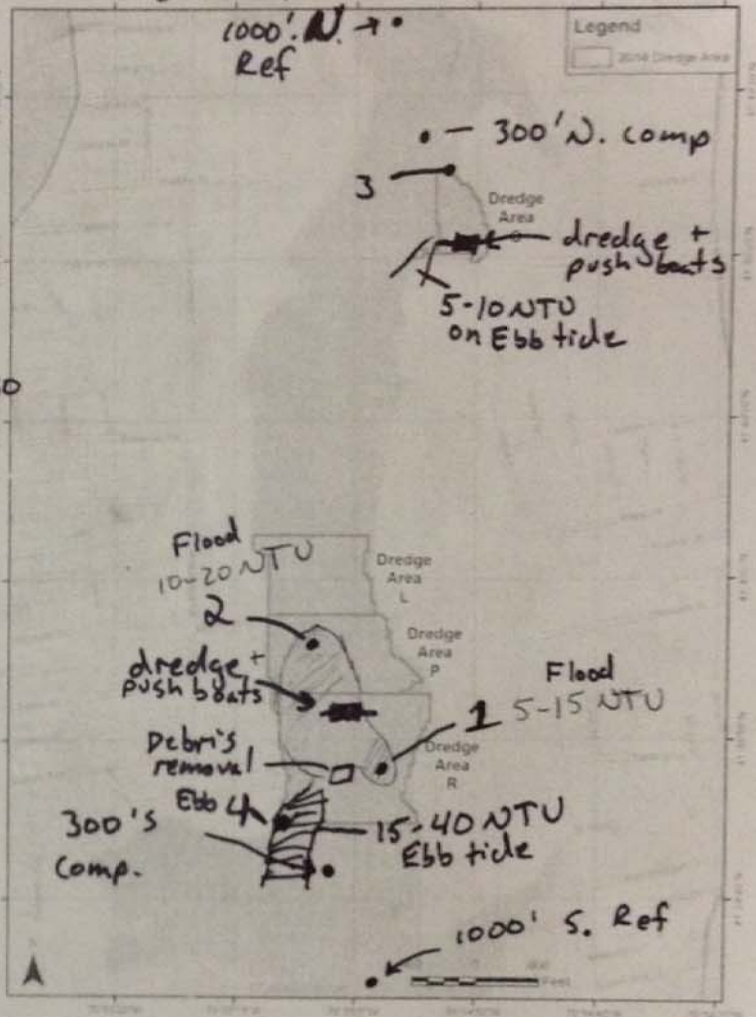 1000' N.
Ref
Legend
2014 Dredge Area
300' N. comp
3
Dredge
Area
O
dredge +
push boats
5-10 NTU
on Ebb tide
Flood
10-20 NTU
2
Dredge
Area
L
Dredge
Area
P
dredge +
push boats
Flood
1 5-15 NTU
Debris
removal
Dredge
Area
R
Ebb 4
300's
Comp.
15-40 NTU
Ebb tide
1000' S. Ref
Feet